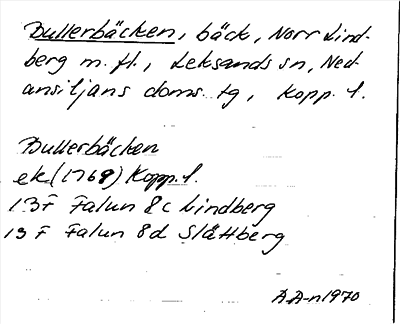 Bullerbäcken, bäck, Norr Lind-
berg m. fl., Leksands sn, Ned-
ansiljans doms. tg, Kopp. l.
Bullerbäcken
ek (1769) Kopp. l.
13F Falun 8c Lindberg
13 F Falun 8d Slättberg
A.A-n 1970